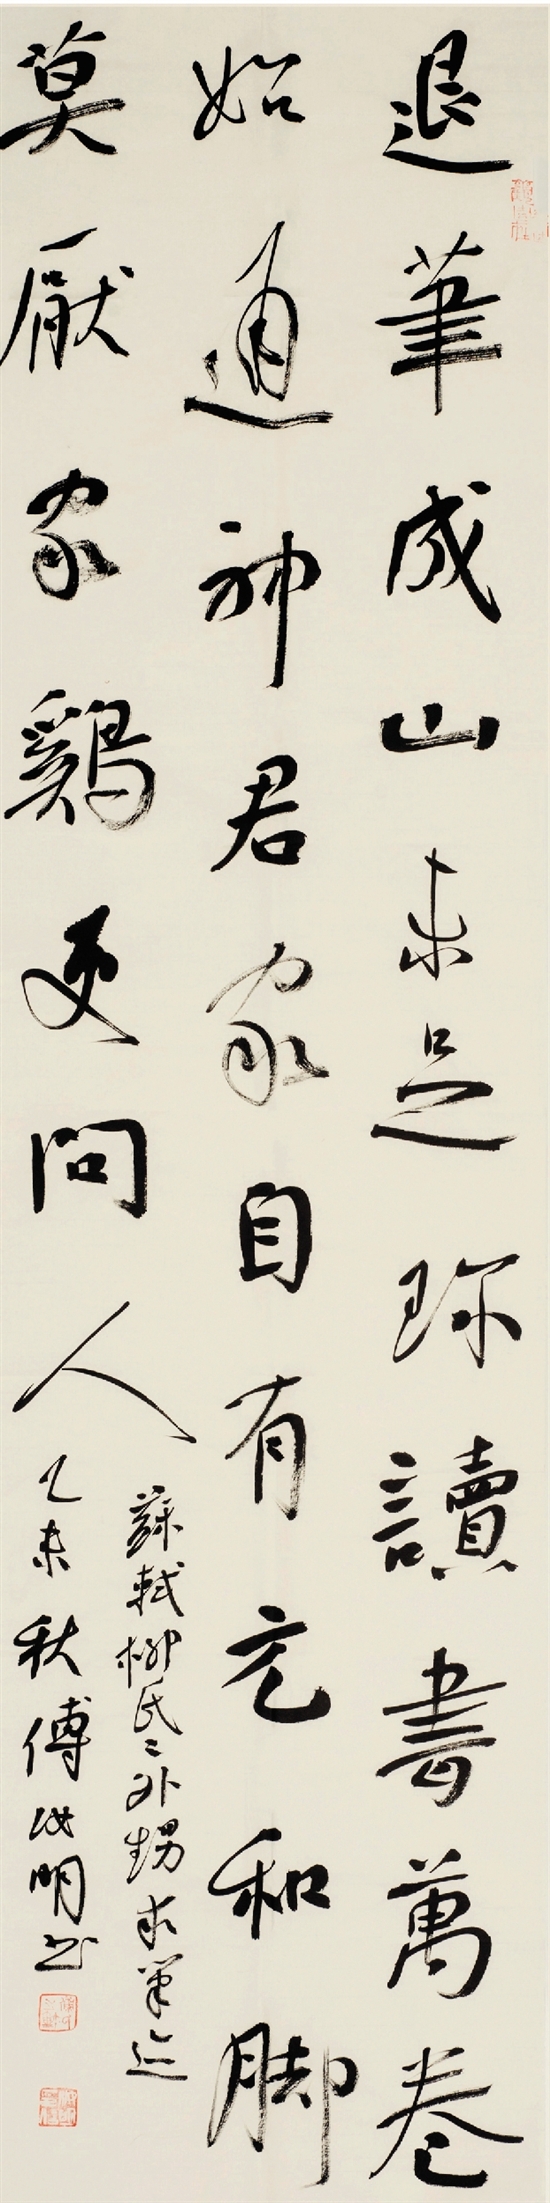 退筆成山未足珍讀書萬卷
始通神君家自有元和脚
莫厭家鷄更問人
蘇軾柳氏二外甥求筆迹
乙未秋傅明书